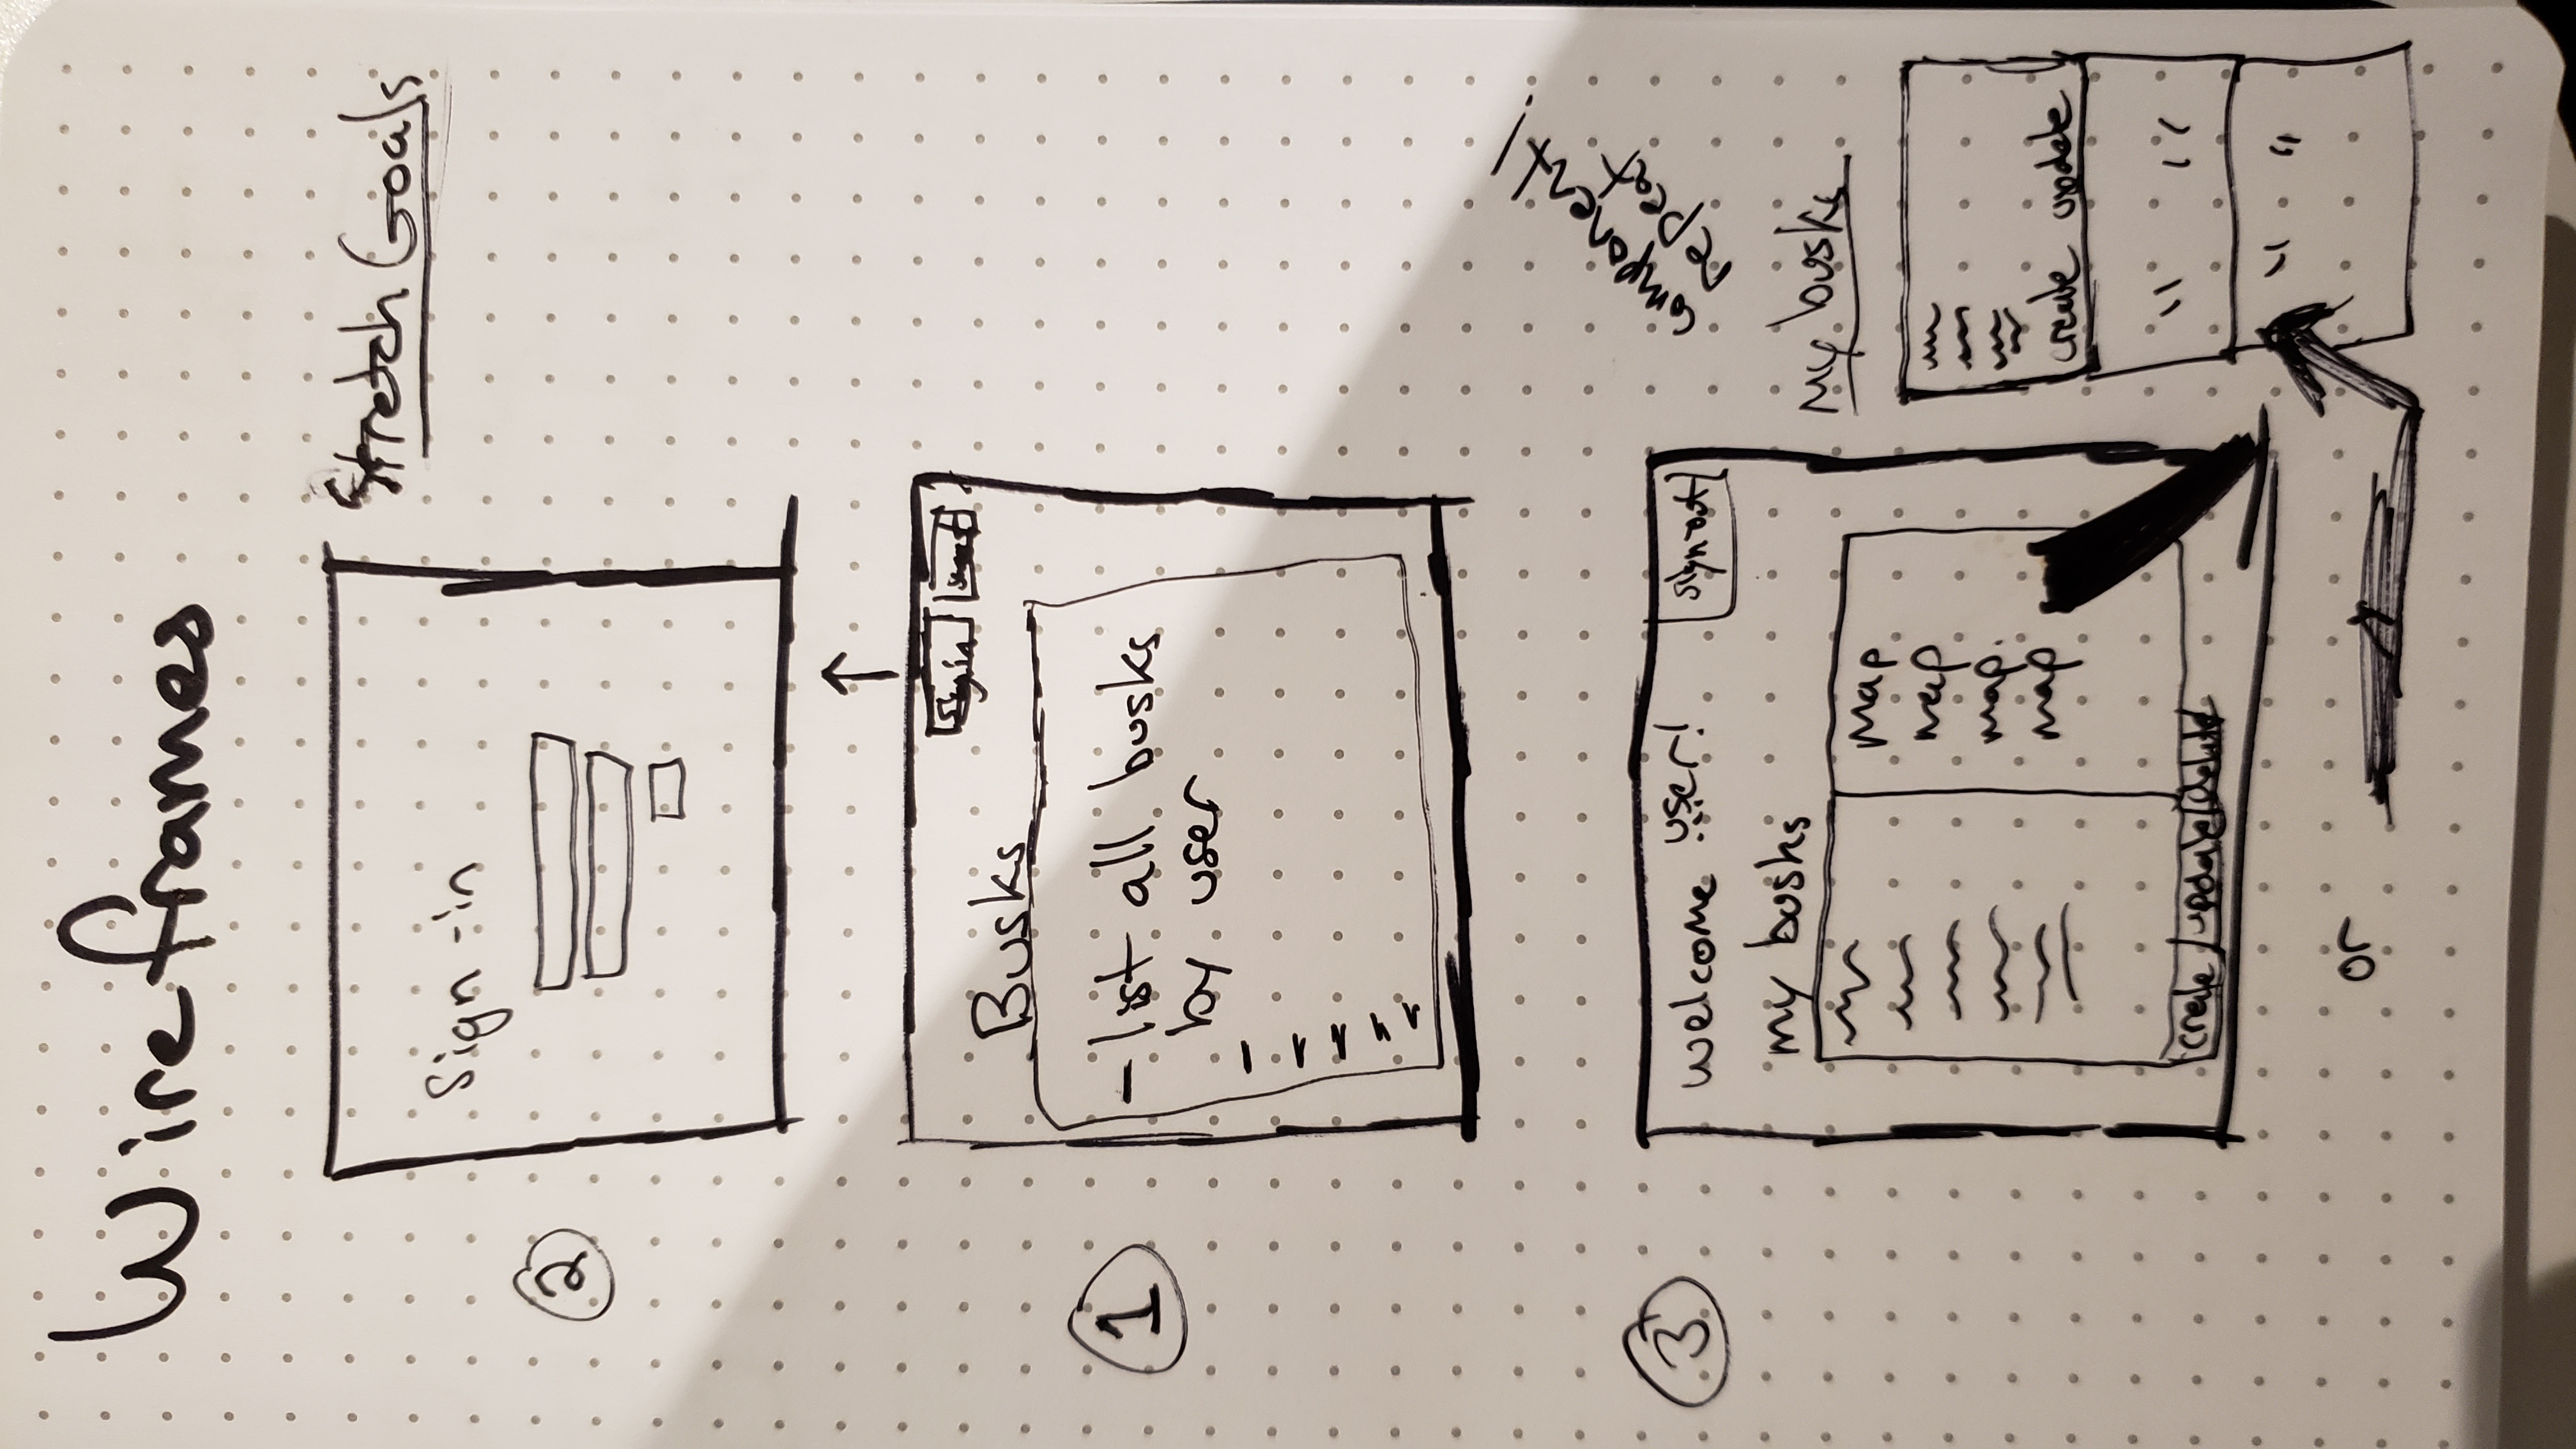 Wireframes
Stretch Goals
Sign-in
2
Sign in
Busks
1
- list all busks
by user
component!
repeat
3
welcome user!
sign-out
my busks
map
map
map.
map
create update Delete
My busks
create update
" "
" "
or